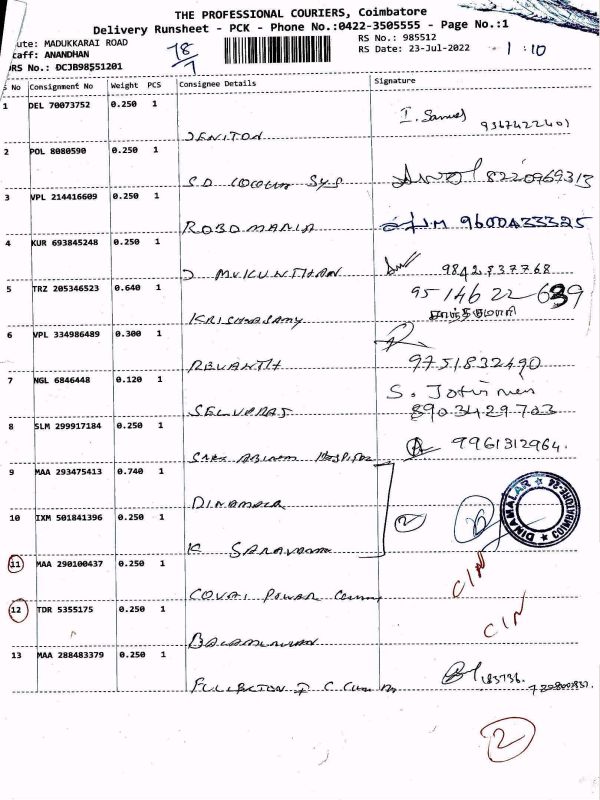 THE PROFESSIONAL COURIERS, Coimbatore
Delivery Runsheet - PCK - Phone No.:0422-3505555 - Page No.:1
ute: MADUKKARAI ROAD
taff: ANANDHAN
DRS No.: DCJB98551201
18/7
RS No.: 985512
RS Date: 23-Jul-2022
1:10
S No Consignment No Weight PCS Consignee Details Signature
1 DEL 70073752 0.250 1 JENITON I. Samuel 9367422401
2 POL 8080590 0.250 1 8220969313
3 VPL 214416609 0.250 1 ROBOMANIA 9600433325
4 KUR 693845248 0.250 1 9842737768
5 TRZ 205346523 0.640 1 KRISHNASAMY 9514622639
6 VPL 334986489 0.300 1 REVANTH 9751832490
7 NGL 6846448 0.120 1 SELVERAJ S. 8903429703
8 SLM 299917184 0.250 1 9961312964.
9 MAA 293475413 0.740 1 DINAMALA
10 IXM 501841396 0.250 1 K SARAVANA 2
DINAMALAR ★ COIMBATORE ★
11 MAA 290100437 0.250 1 COVAI POWER C/N
12 TDR 5355175 0.250 1 C/N
13 MAA 288483379 0.250 1 FULLERTON I C 183736.
2